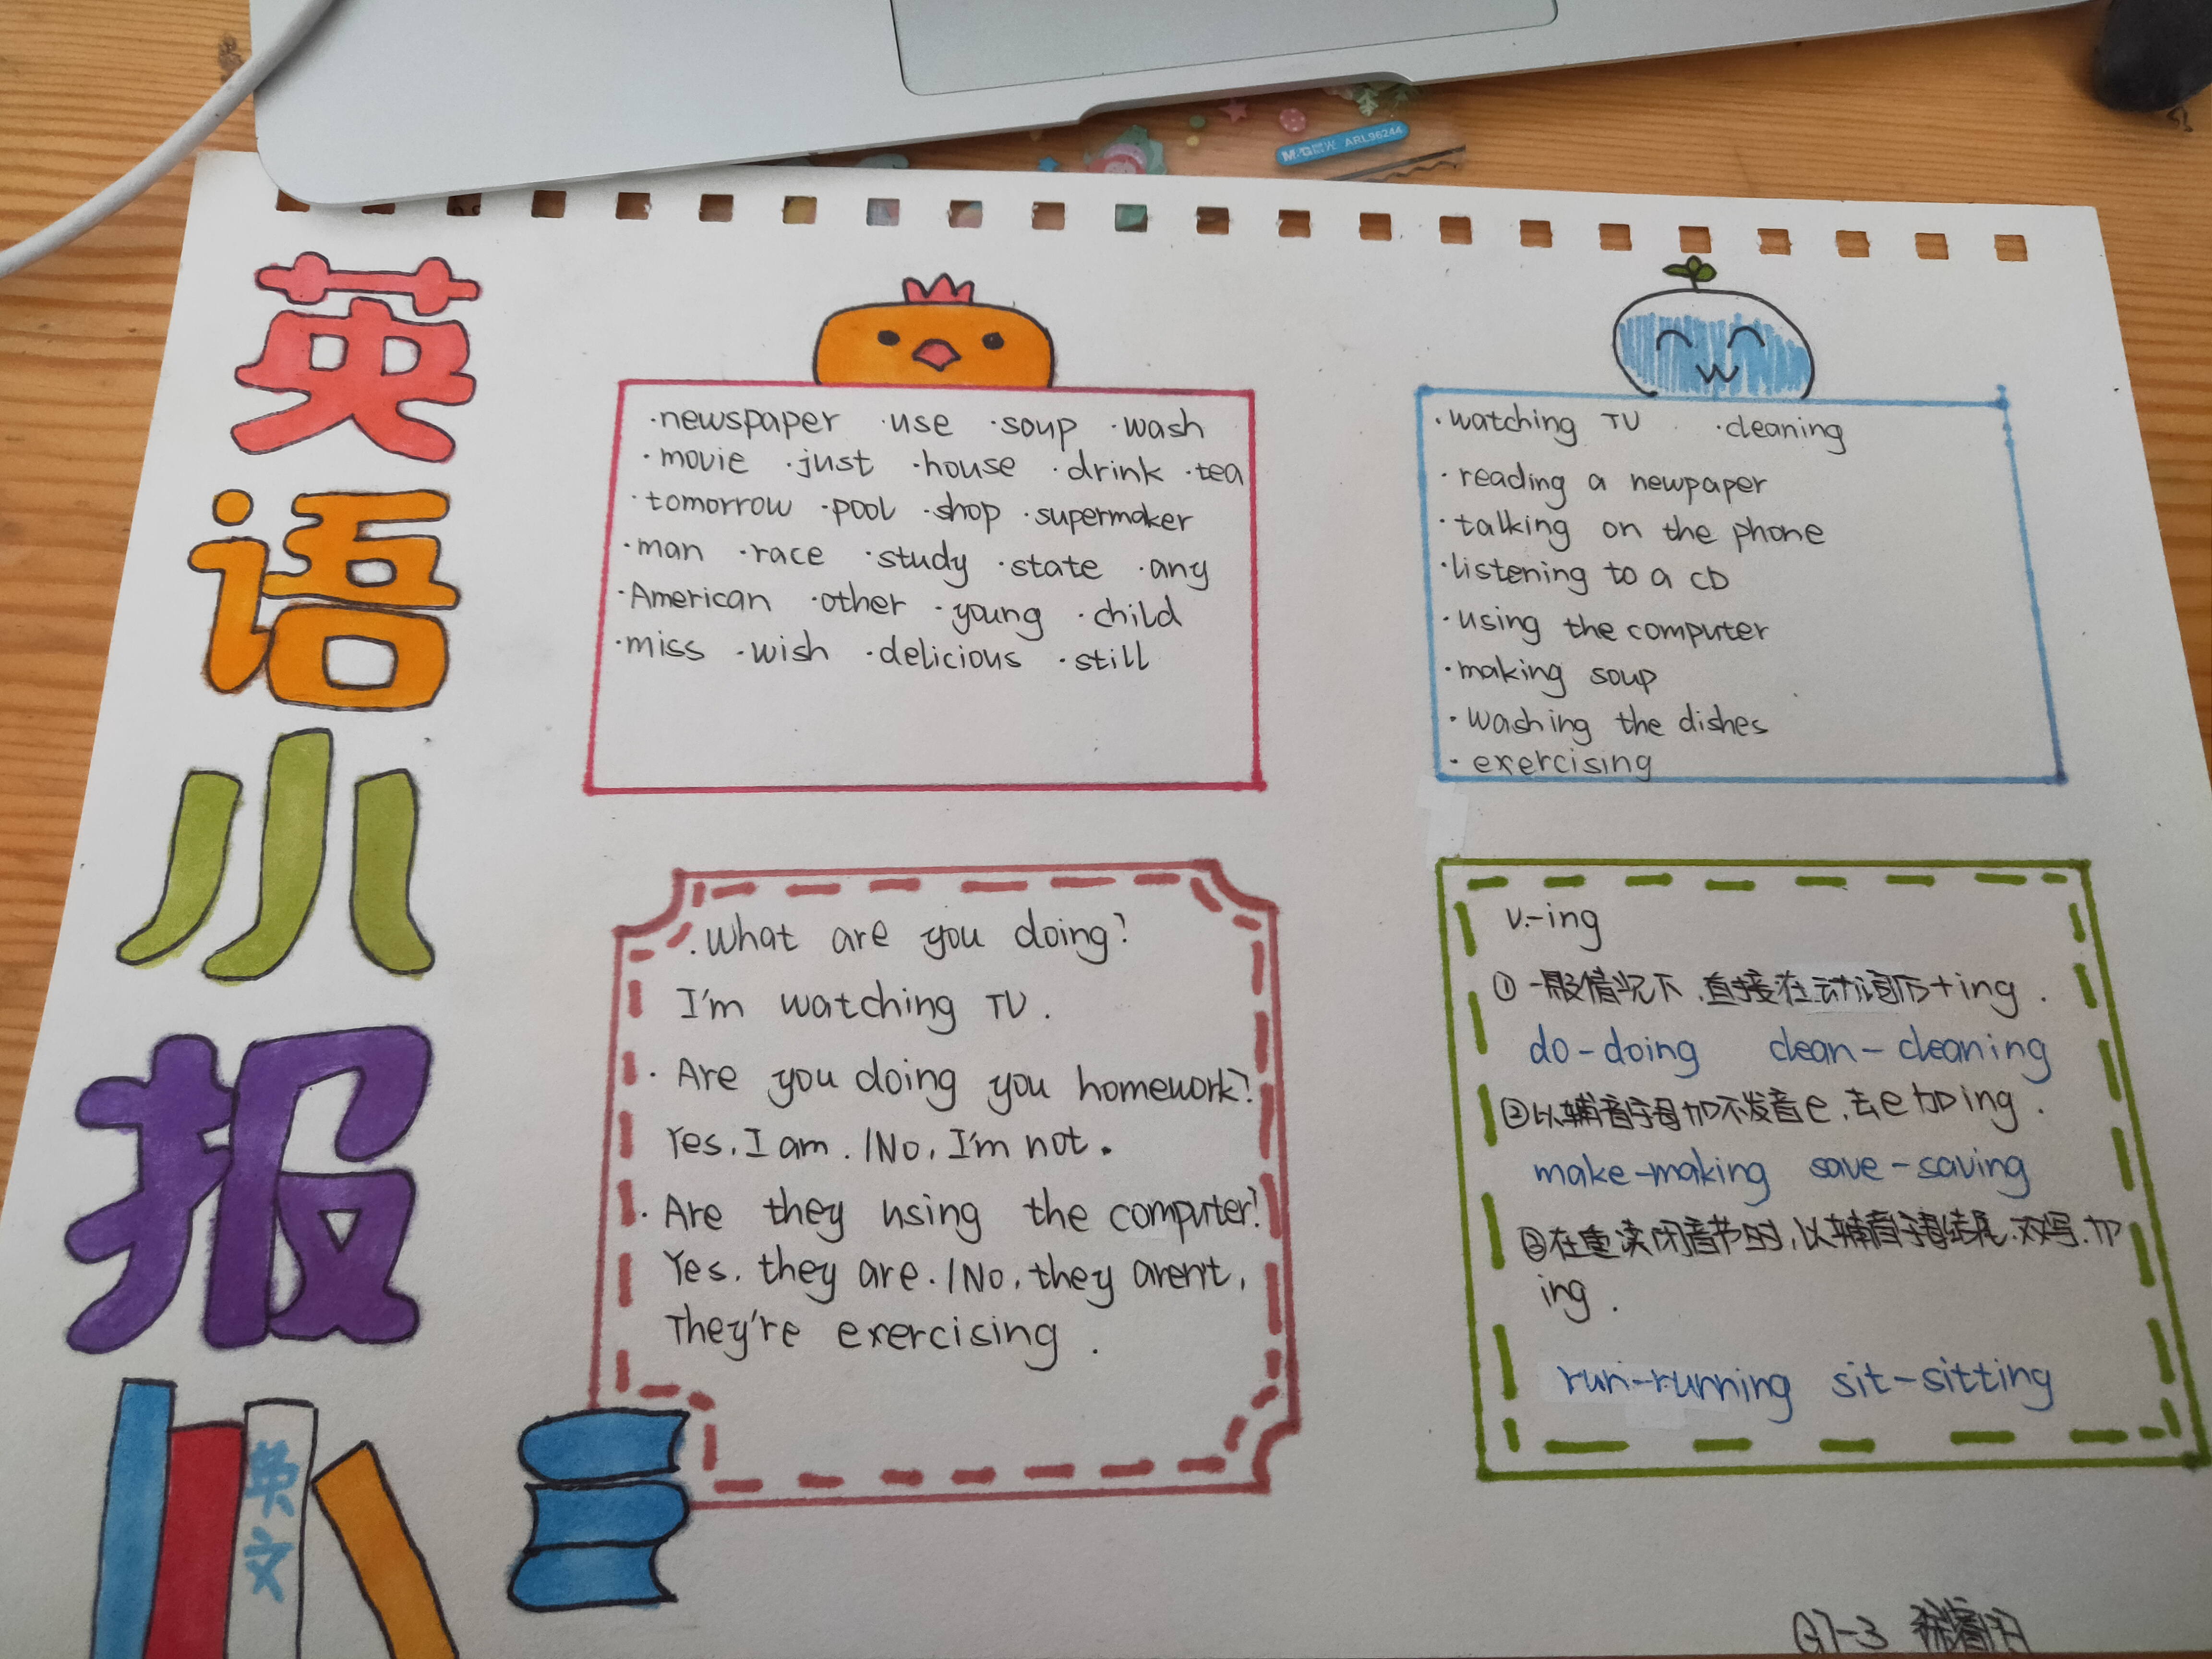 M&G晨光 ARL96244
英语小报
·newspaper ·use ·soup ·wash
·movie ·just ·house ·drink ·tea
·tomorrow ·pool ·shop ·supermaker
·man ·race ·study ·state ·any
·American ·other ·young ·child
·miss ·wish ·delicious ·still
·watching TV ·cleaning
·reading a newpaper
·talking on the phone
·listening to a CD
·using the computer
·making soup
·washing the dishes
·exercising
·What are you doing?
I'm watching TV.
·Are you doing you homework?
Yes, I am. /No, I'm not.
·Are they using the computer?
Yes, they are. /No, they aren't,
They're exercising.
v.-ing
①一般情况下,直接在动词后+ing.
do-doing clean-cleaning
②以辅音字母加不发音e,去e加ing.
make-making save-saving
③在重读闭音节时,以辅音字母结尾,双写,加
ing.
run-running sit-sitting
英文
G7-3